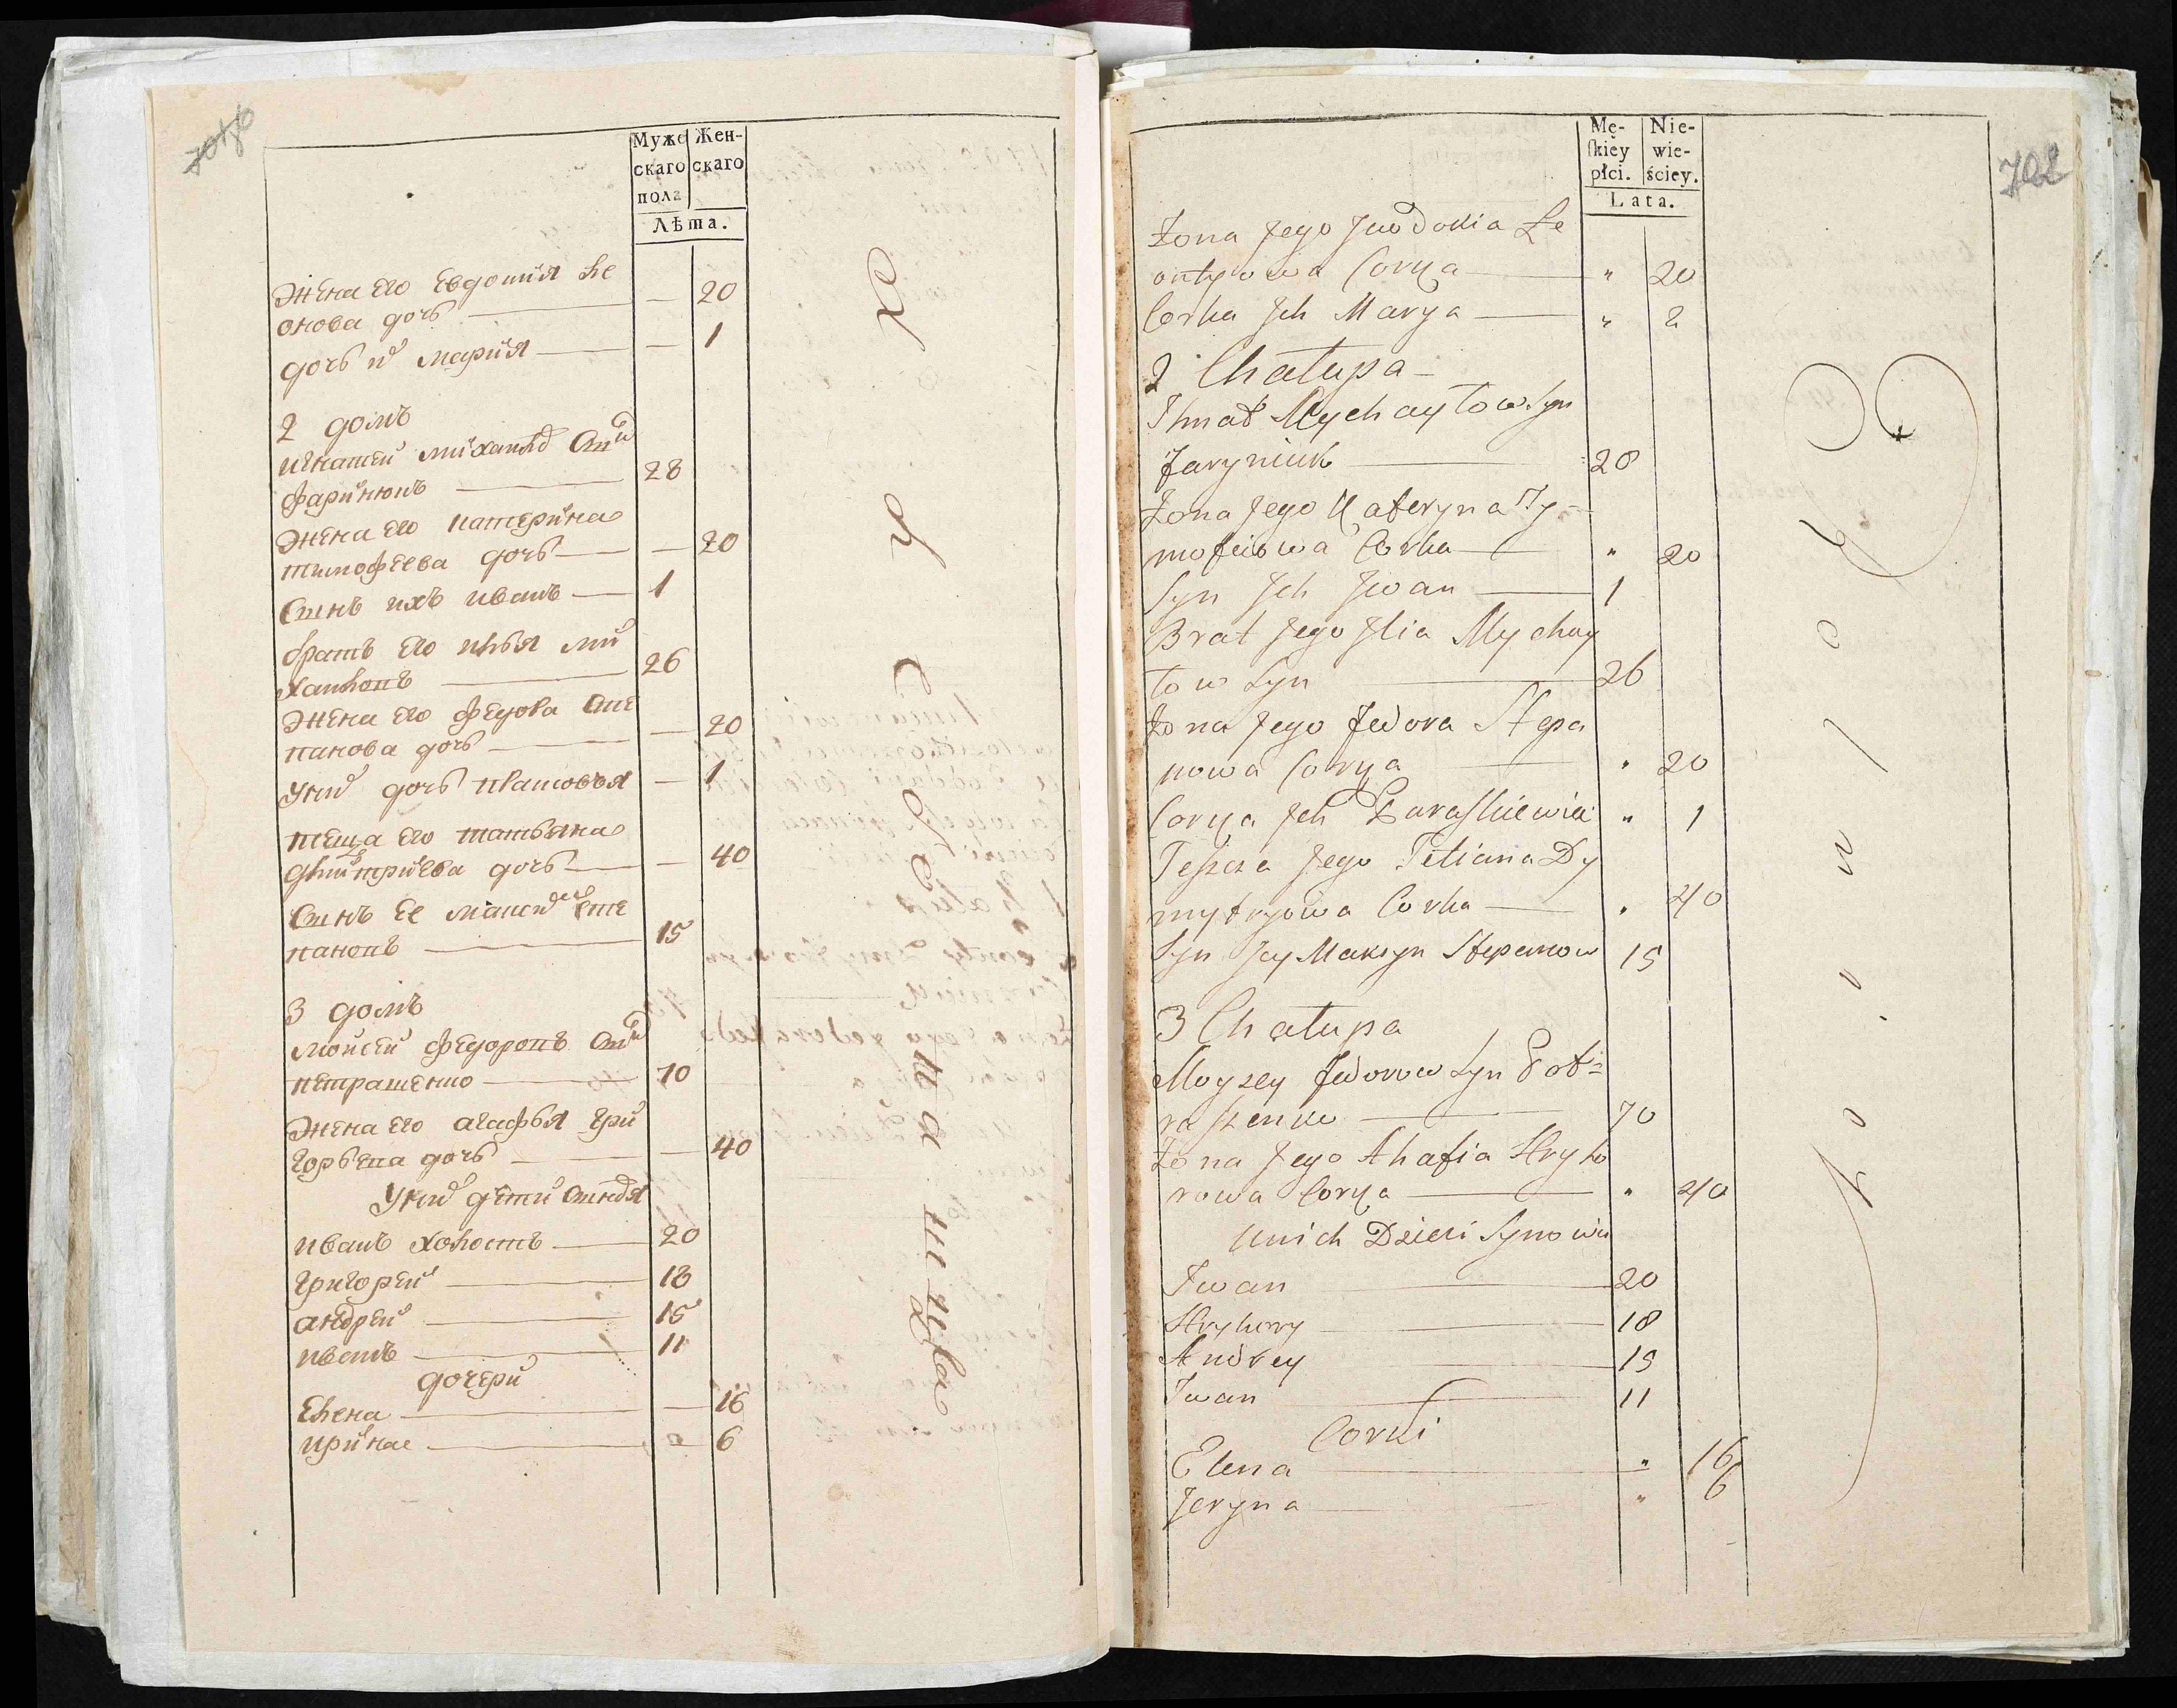 Муже
скаго
пола
Жен-
скаго
Лѣта.
жена его Евдокия Ле
онова дочь — 20
дочь их Мария — 1
2 домъ
игнатей михайлов Сын
фаринюкъ 28
жена его катерина
тимофеева дочь — 20
Сынъ ихъ иванъ 1
братъ его илья ми
хайловъ 26
жена его федора Сте
панова дочь — 20
У них дочь — 1
теща его татьяна
дмитриева дочь — 40
Сынъ Ее максим Сте
пановъ 15
3 домъ
мойсей федоровъ Сын
петрашенко 70
жена его агафья гри
горьева дочь — 40
У них дети Сыновья
иванъ холостъ 20
григорей 18
андрей 15
иванъ 11
дочери
Елена — 16
ирина — 6
702
Mę-
skiey
płci.
Nie-
wie-
ściey.
Lata.
Żona Jego Jewdokia Le
ontyowa Corka " 20
Corka Jch Marya " 2
2 Chałupa
Ihnat Mychayłow Syn
Faryniuk 28
Żona Jego Kateryna Ty-
mofiiowa Corka " 20
Syn Jch Jwan 1
Brat Jego Jlia Mychay
łow Syn 26
Żona Jego Fedora Stepa
nowa Corka " 20
Corka Jch Paraskiewia " 1
Teszcza Jego Tetiana Dy
mytryowa Corka " 40
Syn Jey Maksym Stepanow 15
3 Chałupa
Moyzey Fedorow Syn Pet=
raszenko 70
Żona Jego Ahafia Hryho
rowa Corka " 40
U nich Dzieci Synowie
Jwan 20
Hryhory 18
Andrey 15
Jwan 11
Corki
Elena " 16
Jeryna " 6